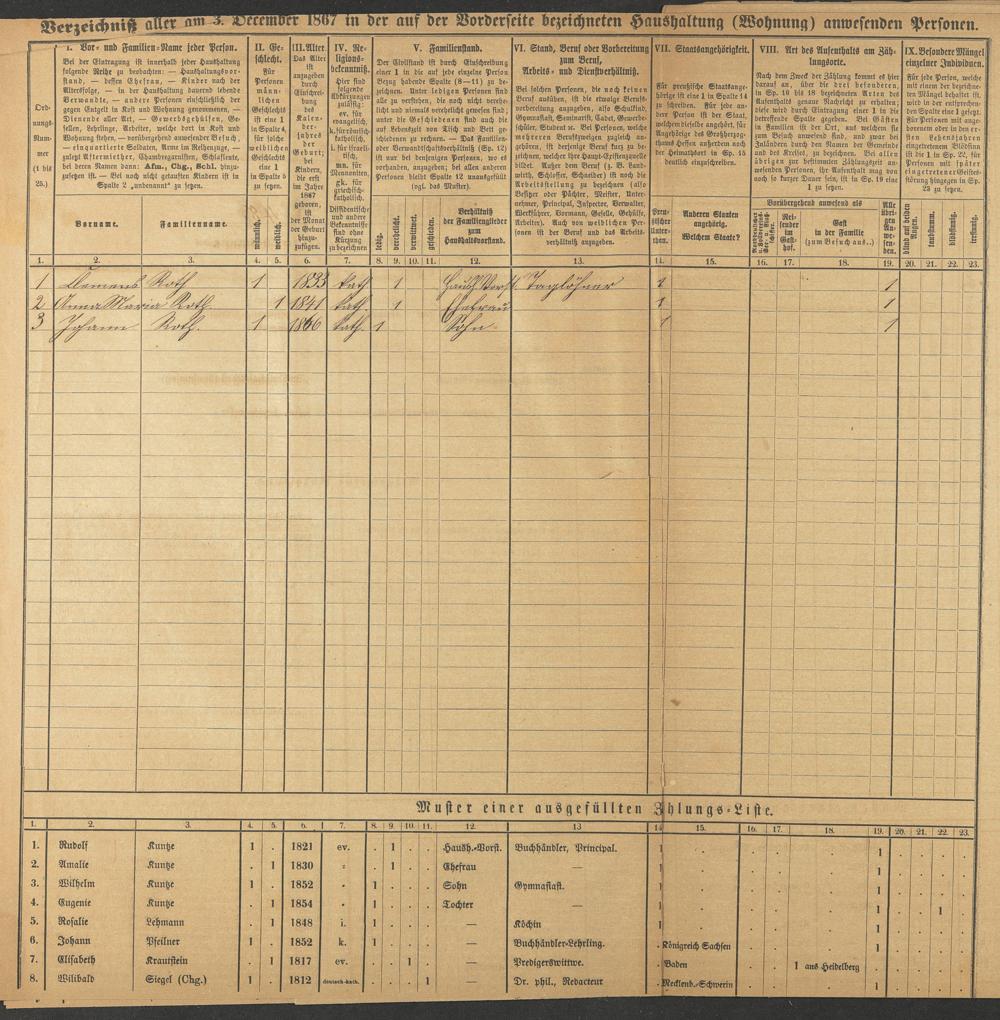 Verzeichniß aller am 3. December 1867 in der auf der Vorderseite bezeichneten Haushaltung (Wohnung) anwesenden Personen.
Ord-
nungs-
Num-
mer
(1 bis
25.)
I. Vor- und Familien-Name jeder Person.
Bei der Eintragung ist innerhalb jeder Haushaltung
folgende Reihe zu beobachten: — Haushaltungsvor-
stand, — dessen Ehefrau, — Kinder nach der
Altersfolge, — in der Haushaltung dauernd lebende
Verwandte, — andere Personen einschließlich der
Dienende aller Art, — Gewerbsgehülfen, Ge-
sellen, Lehrlinge, Arbeiter, welche dort in Kost und
Wohnung stehen, — vorübergehend anwesender Besuch,
gegen Entgelt in Kost und Wohnung genommenen, —
— einquartierte Soldaten, Arme im Reihenzuge, —
zuletzt Aftermiether, Chambregarnisten, Schlafleute,
bei deren Namen dann: Afm., Chg., Schl. hinzu-
zusetzen ist. — Bei noch nicht getauften Kindern ist in
Spalte 2 „unbenannt" zu setzen.
Vorname. Familienname.
II. Ge-
schlecht.
Für
Personen
männ-
lichen
Geschlechts
ist eine
1 in
Spalte 4,
für solche
weiblichen
Geschlechts
eine 1
in Spalte 5
zu setzen.
männlich. weiblich.
III. Alter.
Das Alter
ist
anzugeben
durch
Einschrei-
bung
des
Kalen-
der-
jahres
der
Geburt;
bei
Kindern,
die erst
im Jahre
1867
geboren,
ist
der Monat
der Geburt
hinzu-
zufügen.
IV. Re-
ligions-
bekenntniß.
Hier sind
folgende
Abkürzungen
zulässig:
ev. für
evangelisch,
k. für römisch-
katholisch,
i. für israeli-
tisch,
mn. für
Mennoniten,
gk. für
griechisch-
katholisch.
Dissidentische
und andere
Bekenntnisse
sind ohne
Kürzung
zu bezeichnen.
V. Familienstand.
Der Civilstand ist durch Einschreibung
einer 1 in die auf jede einzelne Person
Bezug habende Spalte (8—11) zu be-
zeichnen. Unter ledigen Personen sind
alle zu verstehen, die noch nicht verehe-
licht und niemals verehelicht gewesen sind;
unter die Geschiedenen sind auch die
auf Lebenszeit von Tisch und Bett ge-
schiedenen zu rechnen. Das Familien-
oder Verwandtschaftsverhältniß (Sp. 12)
ist nur bei denjenigen Personen, wo es
vorhanden, anzugeben; bei allen anderen
Personen bleibt Spalte 12 unausgefüllt
(vgl. das Muster).
ledig. verehelicht. verwittwet. geschieden.
Verhältniß
der Familienglieder
zum
Haushaltsvorstand.
VI. Stand, Beruf oder Vorbereitung
zum Beruf,
Arbeits- und Dienstverhältniß.
Bei solchen Personen, die noch keinen
Beruf ausüben, ist die etwaige Berufs-
vorbereitung anzugeben, also Schulkind,
Gymnasiast, Seminarist, Cadet, Gewerbe-
schüler, Student ꝛc. Bei Personen, welche
mehreren Berufszweigen zugleich an-
gehören, ist derjenige Beruf kurz zu be-
zeichnen, welcher ihre Haupt-Existenzquelle
bildet. Außer dem Beruf (z. B. Land-
wirth, Schlosser, Schneider) ist noch die
Arbeitsstellung zu bezeichnen (also
Besitzer oder Pächter, Meister, Unter-
nehmer, Principal, Inspector, Verwalter,
Werkführer, Vormann, Geselle, Gehülfe,
Arbeiter). Auch von weiblichen Per-
sonen ist der Beruf und das Arbeits-
verhältniß anzugeben.
VII. Staatsangehörigkeit.
Für preußische Staatsange-
hörige ist eine 1 in Spalte 14
zu schreiben. Für jede an-
dere Person ist der Staat,
welchem dieselbe angehört, für
Angehörige des Großherzog-
thums Hessen außerdem noch
der Heimathsort in Sp. 15
deutlich einzuschreiben.
Preu-
ßischer
Unter-
then.
Anderen Staaten
angehörig.
Welchem Staate?
VIII. Art des Aufenthalts am Zäh-
lungsorte.
Nach dem Zweck der Zählung kommt es hier
darauf an, über die drei besonderen,
in Sp. 16 bis 18 bezeichneten Arten des
Aufenthalts genaue Nachricht zu erhalten;
diese wird durch Eintragung einer 1 in die
betreffende Spalte gegeben. Bei Gästen
in Familien ist der Ort, aus welchem sie
zum Besuch anwesend sind, und zwar bei
Inländern durch den Namen der Gemeinde
und des Kreises, zu bezeichnen. Bei allen
übrigen zur bestimmten Zählungszeit an-
wesenden Personen, ihr Aufenthalt mag von
noch so kurzer Dauer sein, ist in Sp. 19 eine
1 zu setzen.
Vorübergehend anwesend als
Rei-
sender
im
Gast-
hof.
Gast
in der Familie
(zum Besuch aus..)
Alle
übri-
gen
An-
we-
sen-
den.
IX. Besondere Mängel
einzelner Individuen.
Für jede Person, welche
mit einem der bezeichne-
ten Mängel behaftet ist,
wird in der entsprechen-
den Spalte eine 1 gesetzt.
Für Personen mit ange-
borenem oder in den er-
sten Lebensjahren
eingetretenem Blödsinn
ist die 1 in Sp. 22, für
Personen mit später
eingetretener Geistes-
störung hingegen in Sp.
23 zu setzen.
blind auf beiden Augen. taubstumm. blödsinnig. irrsinnig.
1. 2. 3. 4. 5. 6. 7. 8. 9. 10. 11. 12. 13. 14. 15. 16. 17. 18. 19. 20. 21. 22. 23.
1 Clemens Roth 1 1833 kath. 1 Haush Vorst. Taglöhner 1 1
2 Anna Maria Roth 1 1841 kath. 1 Ehefrau 1 1
3 Johann Roth. 1 1866 kath. 1 Sohn 1 1
Muster einer ausgefüllten Zählungs-Liste.
1. 2. 3. 4. 5. 6. 7. 8. 9. 10. 11. 12. 13 14 15. 16. 17. 18. 19. 20. 21. 22. 23.
1. Rudolf Kuntze 1 . 1821 ev. . 1 . . Haush.-Vorst. Buchhändler, Principal. 1 . . . . 1 . . . .
2. Amalie Kuntze . 1 1830 " . 1 . . Ehefrau — 1 . . . . 1 . . . .
3. Wilhelm Kuntze 1 . 1852 " 1 . . . Sohn Gymnasiast. 1 . . . . 1 . . . .
4. Eugenie Kuntze . 1 1854 " 1 . . . Tochter — 1 . . . . 1 . . 1 .
5. Rosalie Lehmann . 1 1848 i. 1 . . . — Köchin 1 . . . . 1 . . . .
6. Johann Pfeilner 1 . 1852 k. 1 . . . — Buchhändler-Lehrling. . Königreich Sachsen . . . 1 . . . .
7. Elisabeth Krautstein . 1 1817 ev. . . 1 . — Predigerswittwe. . Baden . . 1 aus Heidelberg . . . . .
8. Wilibald Siegel (Chg.) 1 . 1812 deutsch-kath. . . . 1 — Dr. phil., Redacteur . Mecklenb.-Schwerin . . . 1 . . . .